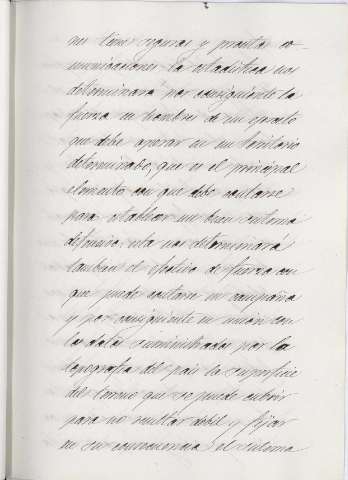 nes lineas seguras y prontas co-
municaciones. La estadistica nos
determinará por consiguiente la
fuerza en hombres de un ejercito
que debe operar en un territorio
determinado, que es el principal
elemento con que debe contarse
para establecer un buen sistema
defensivo; ella nos determinará
tambien el efectivo de fuerza con
que puede contarse en campaña
y por consiguiente en union con
los datos suministrados por la
topografia del pais la superficie
del terreno que se puede cubrir
para no resultar debil y fijar
en su consecuencia el sistema